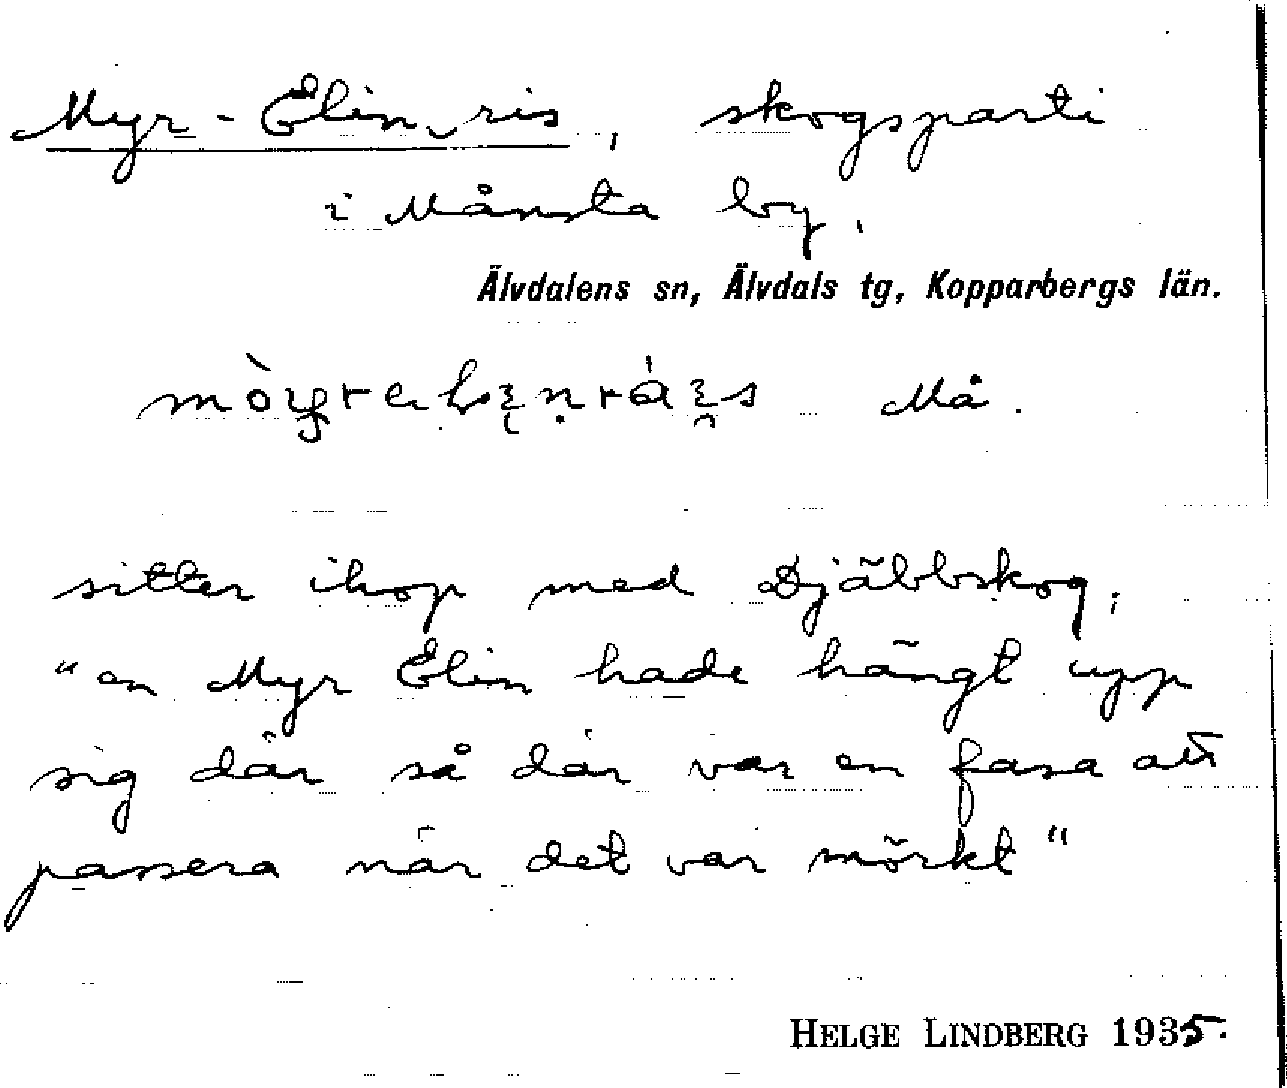 Myr-Elin ris, skogsparti
i Månsta by.
Älvdalens sn, Älvdals tg, Kopparbergs län.
Må.
sitter ihop med Djäbbskog,
"en Myr Elin hade hängt upp
sig där så där var en fasa att
passera när det var mörkt"
HELGE LINDBERG 1935.